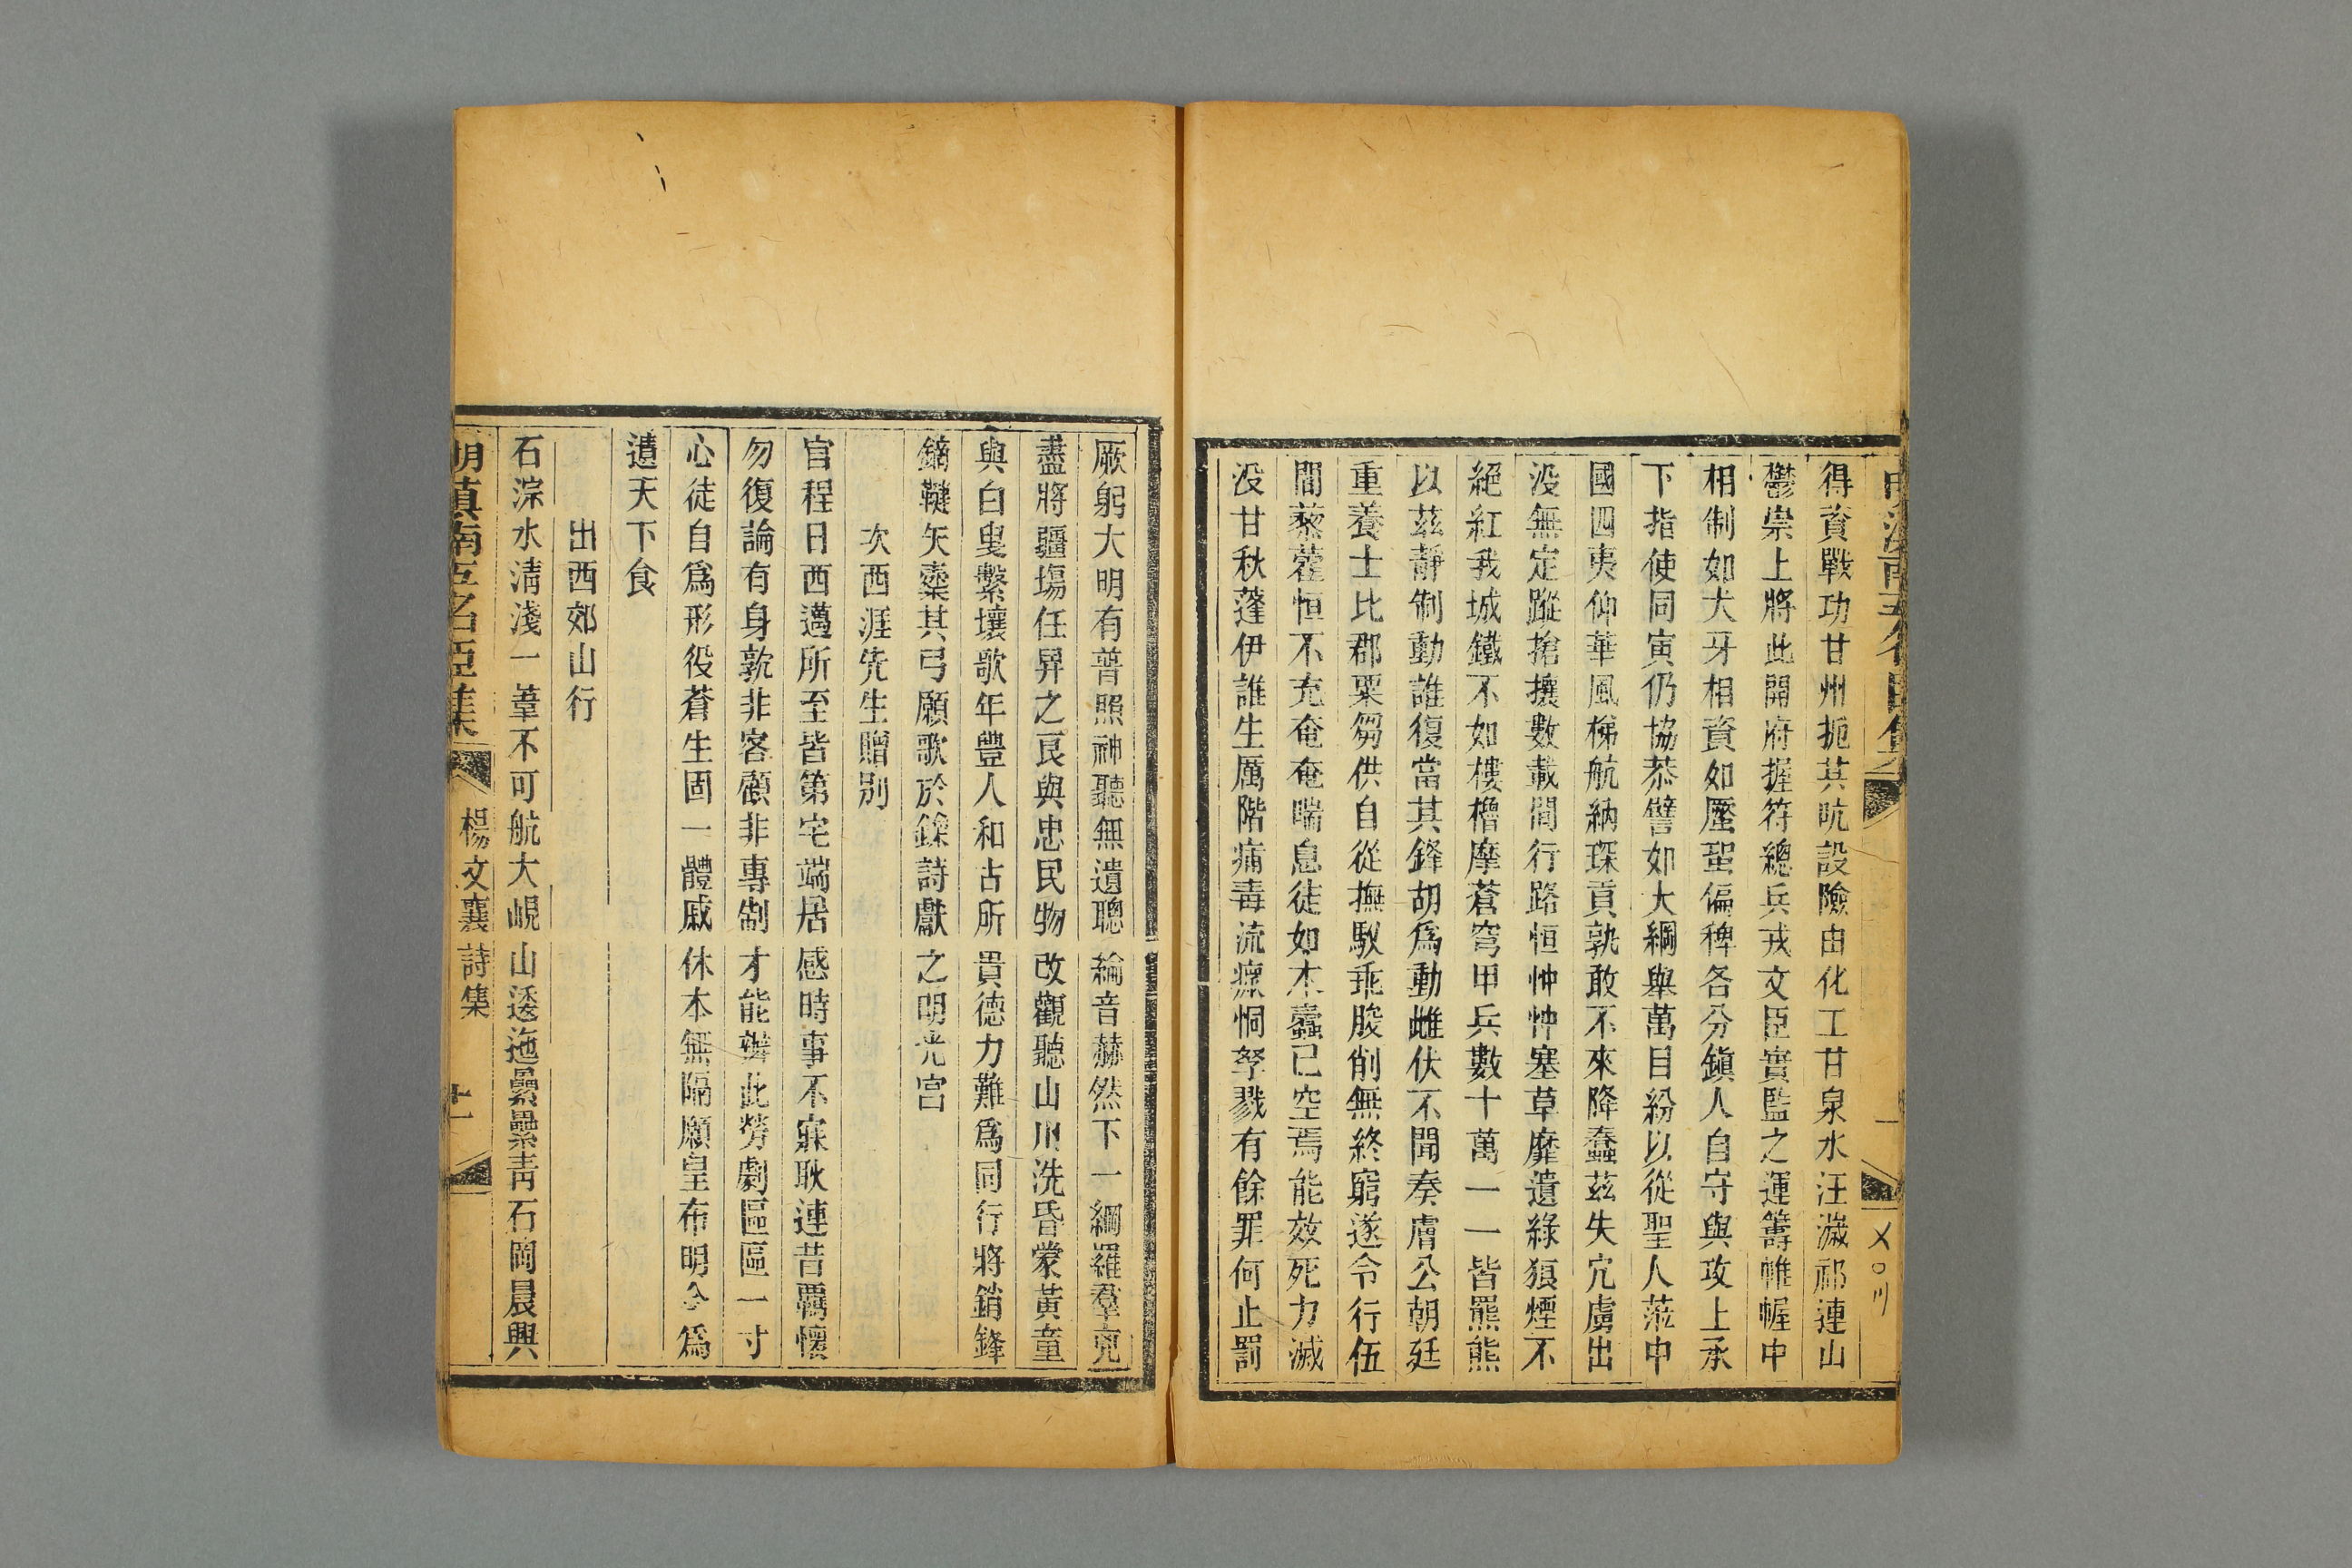 得資戰功甘州扼其吭設險由化工甘泉水汪濊祁連山
鬱崇上將此開府握符總兵戎文臣實監之運籌帷幄中
相制如犬牙相資如蛩偏稗各分鎮人自守與攻上承
下指使同寅仍協恭譬如大綱舉萬目紛以從聖人蒞中
國四夷仰華風梯航納琛貢孰敢不來降蠢茲失穴虜出
没無定蹤搶攘數載間行路恒忡忡塞草靡遺綠狼煙不
絕紅我城鐵不如樓櫓摩蒼穹甲兵數十萬一一皆羆熊
以茲靜制動誰復當其鋒胡爲動雌伏不聞奏膚公朝廷
重養士比郡粟芻供自從撫馭乖朘削無終窮遂令行伍
間藜藿恒不充奄奄喘息徒如木蠹已空焉能效死力滅
没甘秋蓬伊誰生厲階痛毒流瘝恫孥戮有餘罪何止罰
厥躬大明有普照神聽無遺聰綸音赫然下一網羅羣兇
盡將疆埸任昇之良與忠民物改觀聽山川洗昏蒙黃童
與白叟擊壤歌年豐人和古所貴德力難爲同行將銷鋒
鏑韃矢櫜其弓願歌於鑠詩獻之明光宮
次西涯先生贈別
官程日西邁所至皆第宅端居感時事不寐耿連昔羈懷
勿復論有身孰非客顧非專制才能辦此勞劇區區一寸
心徒自爲形役蒼生固一體戚休本無隔願皇布明令爲
遺天下食
出西郊山行
石淙水淸淺一葦不可航大峴山逶迤纍纍靑石岡晨興
明滇南五名臣集
楊文襄詩集
十一